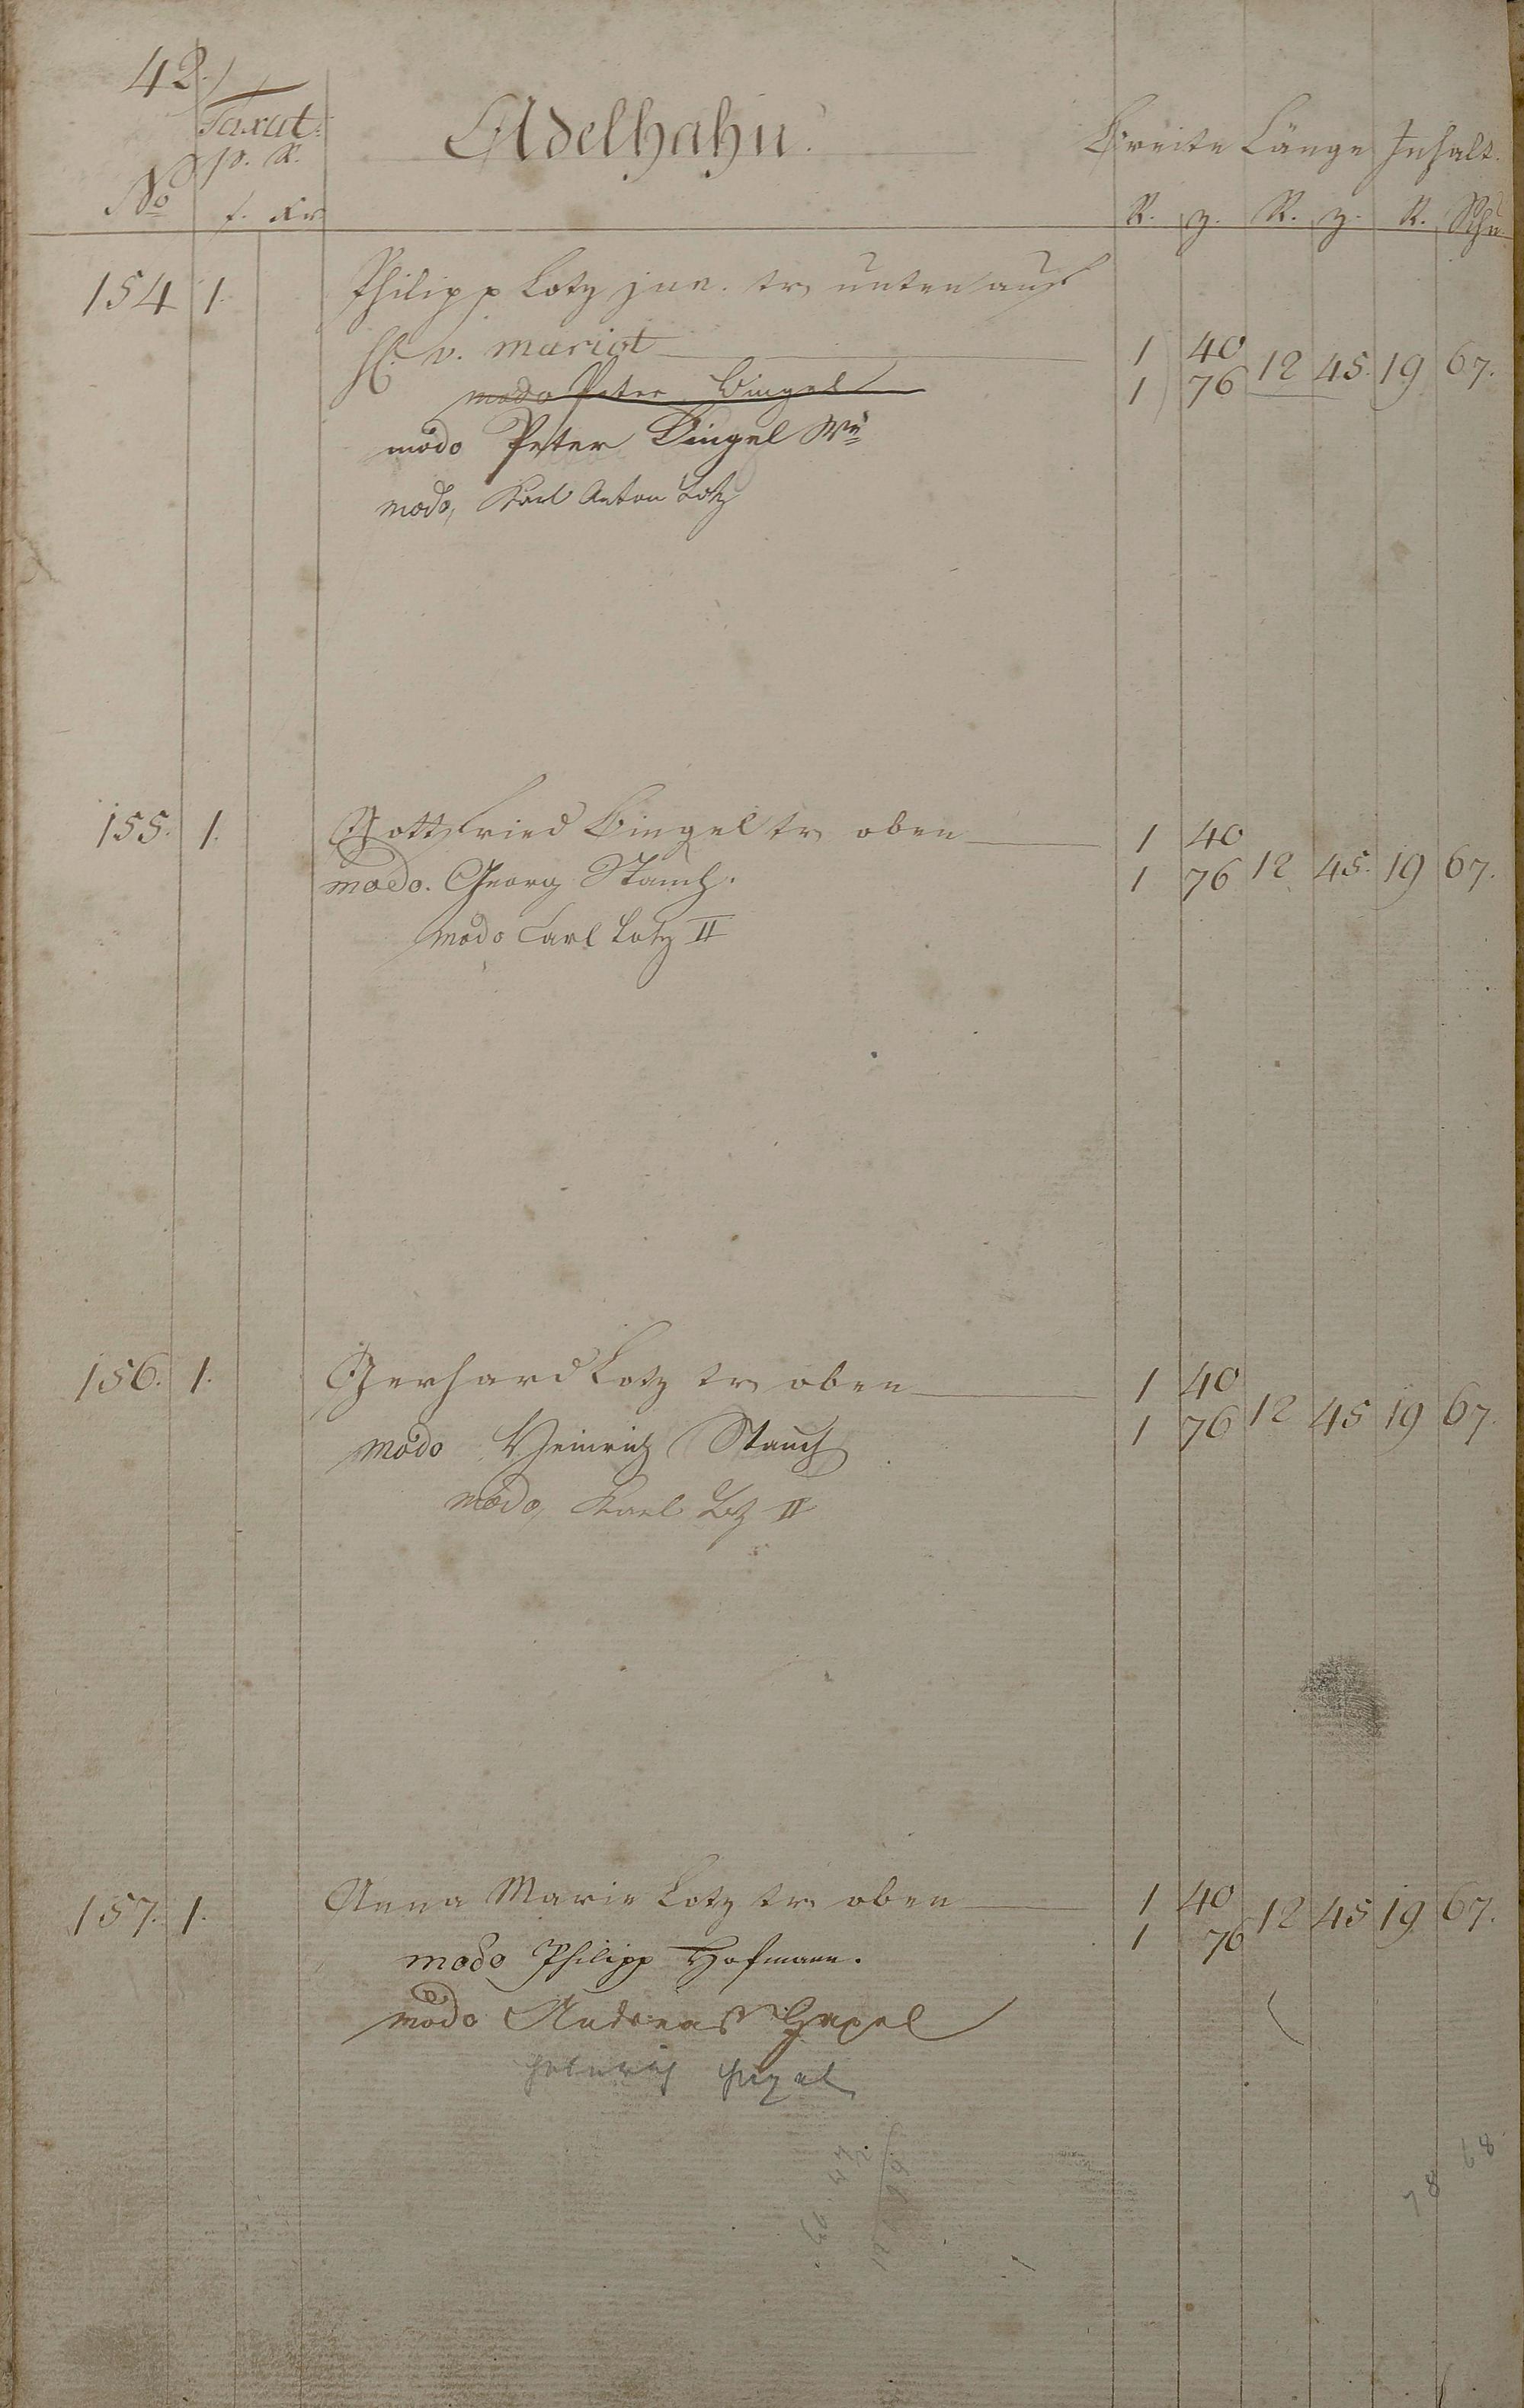 42.
Taxat:
p. R.
Adelhahn.
Breite Länge Inhalt.
No f. Kr R. z. R. z. R. Schu
154 1. Philipp Lotz jun. tr. unten auf
H. v. mariot 1 40 12 45. 19 67.
modo Peter Bingel 1 76
modo Peter Bingel We
modo, Karl Anton Lotz
155. 1. Gottfried Bingel tr. oben 1 40
modo. Georg Stauch. 1 76 12 45. 19 67.
modo Carl Lotz II
156. 1. Gerhard Lotz tr. oben 1 40
modo Heinrich Stauch 1 76 12 45 19 67.
modo, Karl Lotz II
157. 1. Anna Marie Lotz tr. oben 1 40 12 45 19 67.
modo Philipp Hofmann. 1 76
modo Andreas
Heinrich
68
78